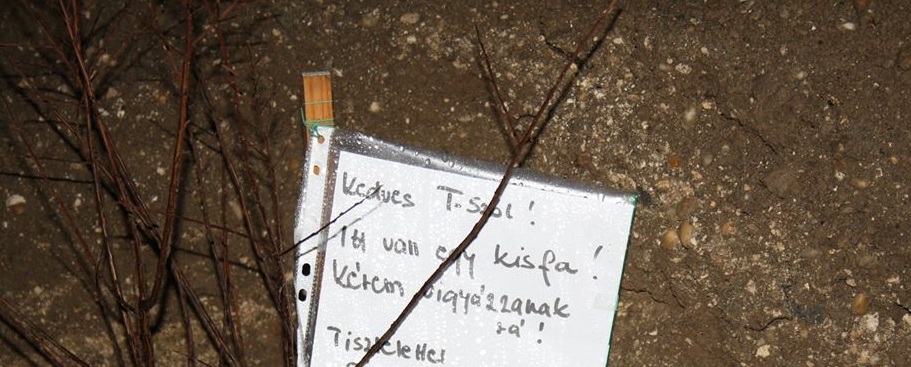 Kedves T-Szol!
Itt van egy kisfa!
Kérem vigyázzanak
rá!
Tisztelettel